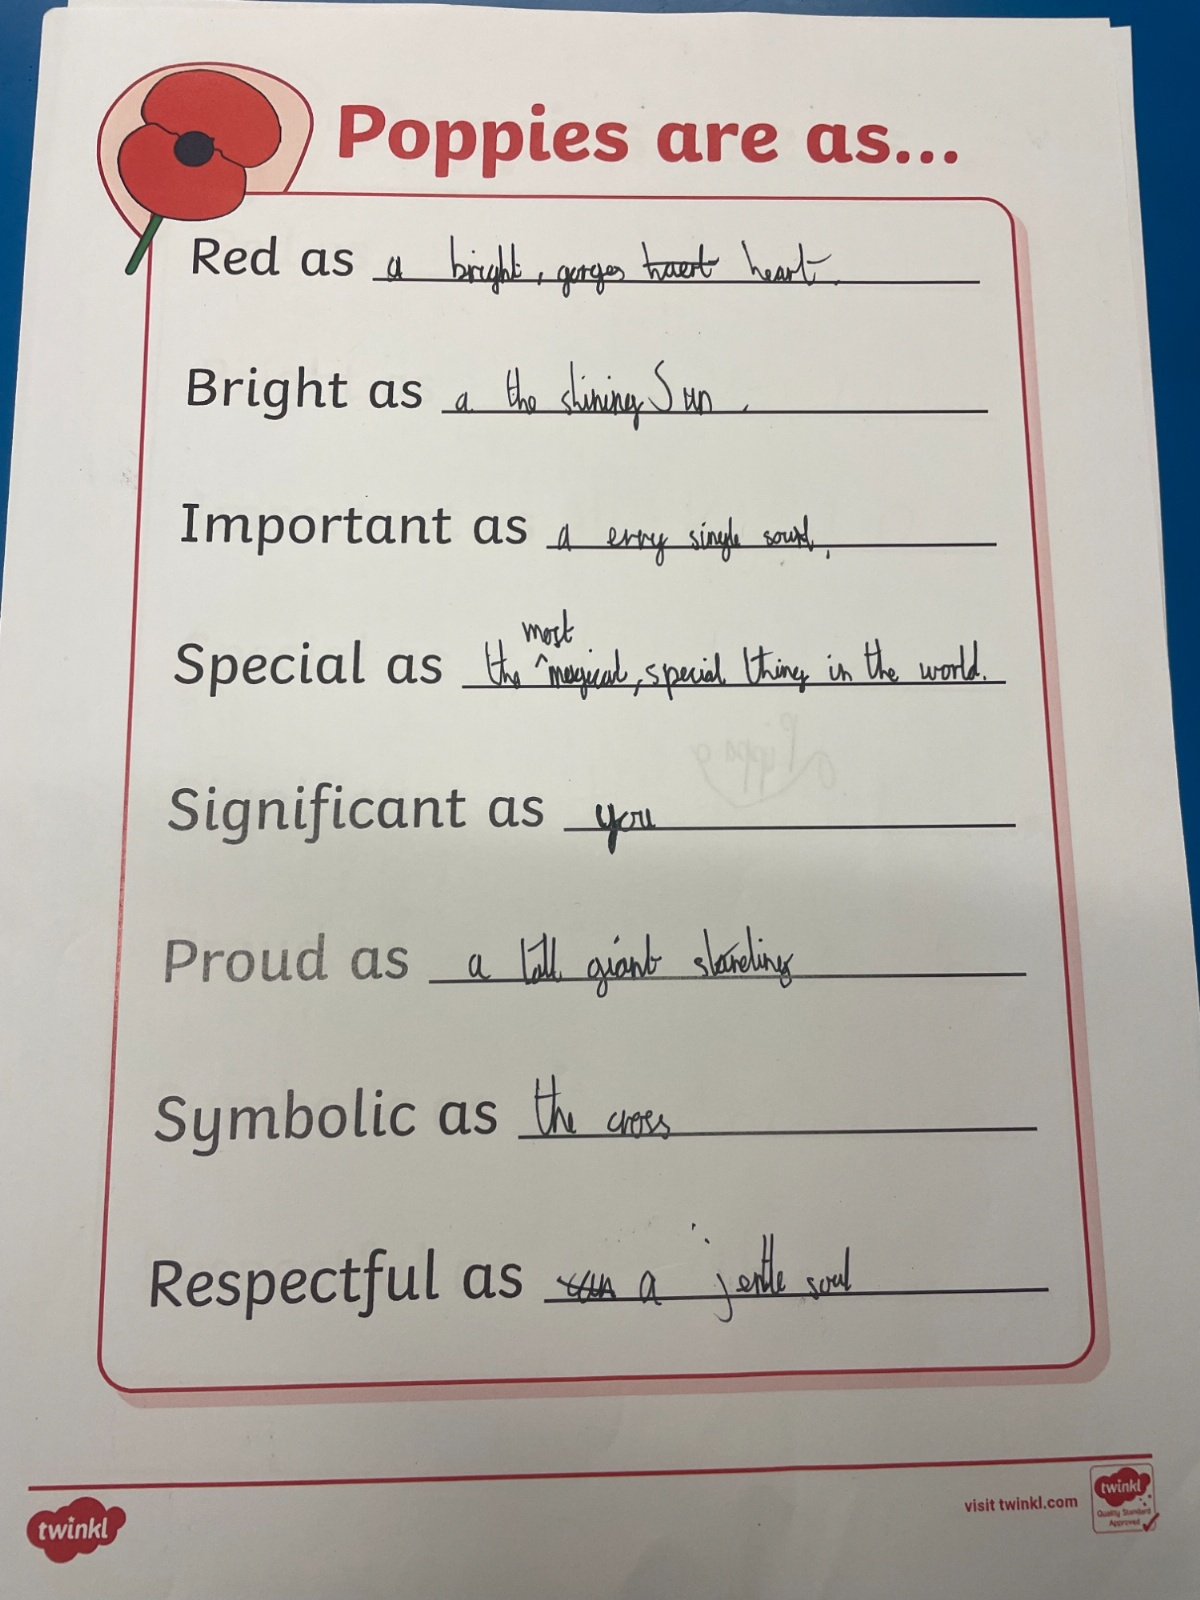 Poppies are as...
Red as a bright, gorges haert heart.
Bright as a the shining Sun.
Important as a erry single
most
Special as the ^magical, special thing in the world.
Significant as you
Proud as a tall giant standing
Symbolic as the cross
Respectful as a jentle soul
twinkl
visit twinkl.com
twinkl
Quality Standard
Approved